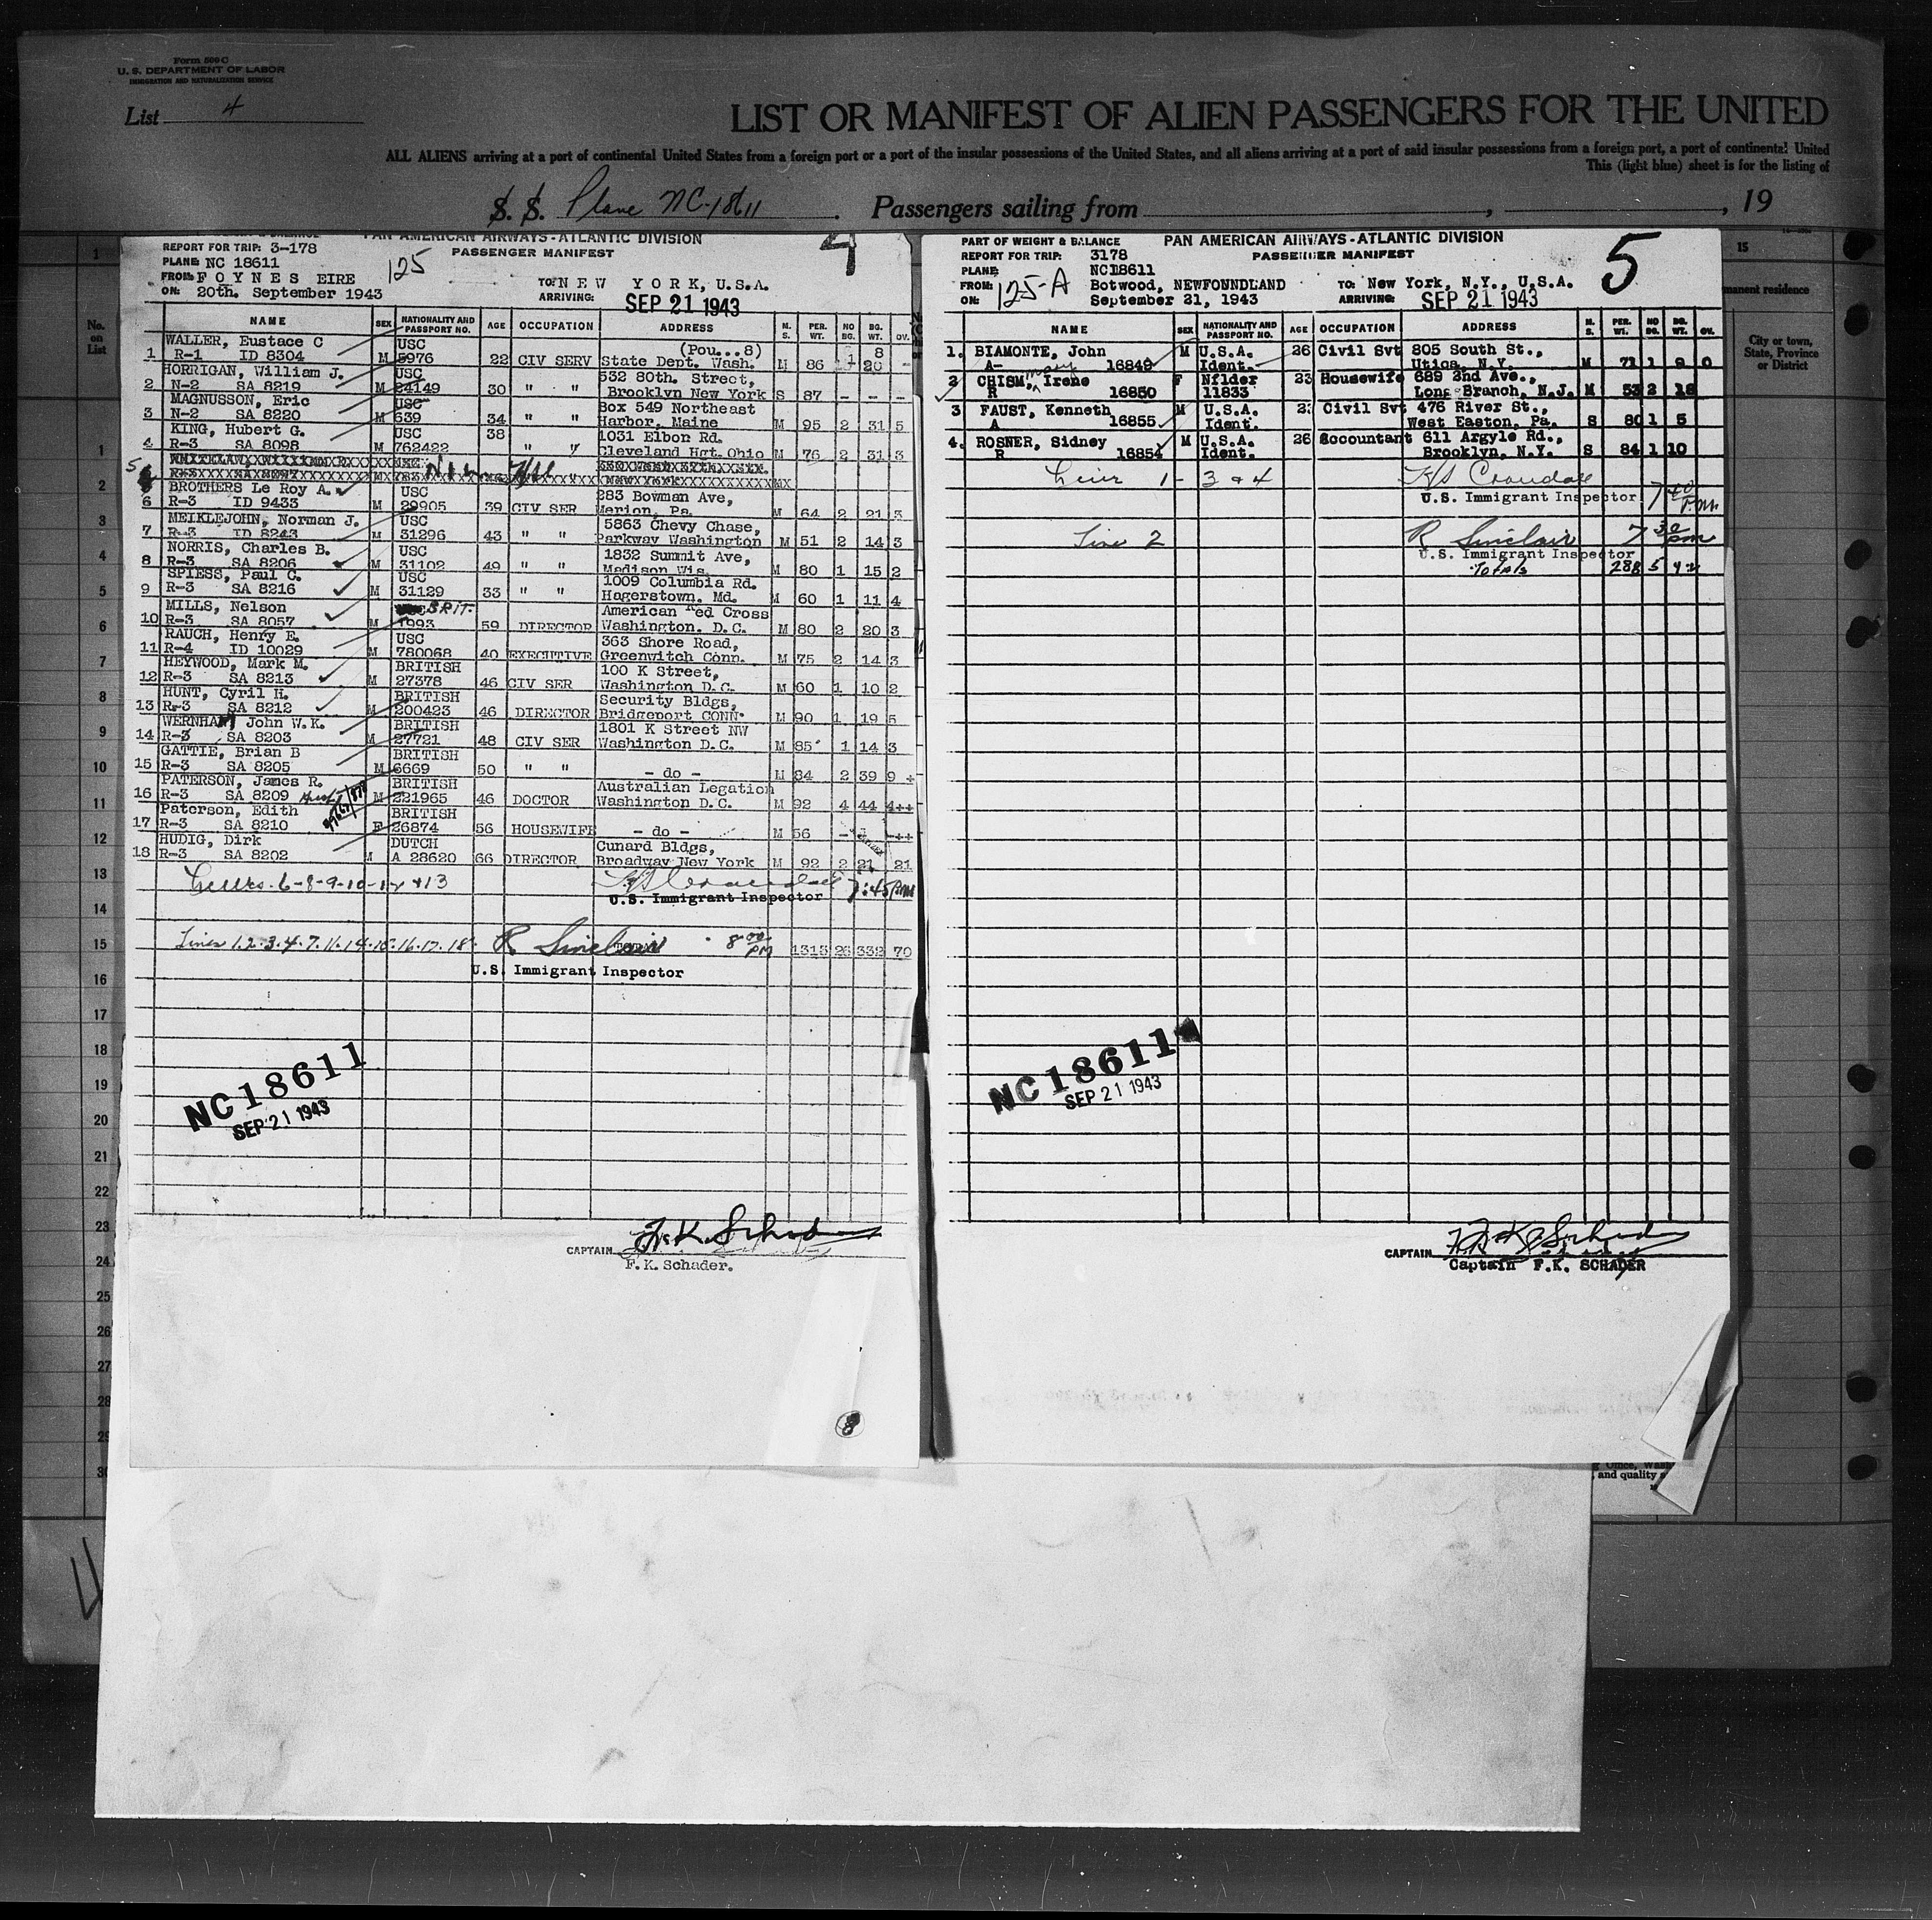 Form 500 C
U. S. DEPARTMENT OF LABOR
IMMIGRATION AND NATURALIZATION SERVICE
List 4
LIST OR MANIFEST OF ALIEN PASSENGERS FOR THE UNITED
ALL ALIENS arriving at a port of continental United States from a foreign port or a port of the insular possessions of the United States, and all aliens arriving at a port of said insular possessions from a foreign port, a port of continental United
This (light blue) sheet is for the listing of
S. S. Plane NC-18611 . Passengers sailing from , , 19
PAN AMERICAN AIRWAYS-ATLANTIC DIVISION
REPORT FOR TRIP: 3-178
PASSENGER MANIFEST
4
PLANE: NC 18611
125
FROM: FOYNES EIRE
TO: NEW YORK, U.S.A.
ON: 20th. September 1943
ARRIVING: SEP 21 1943
NAME SEX NATIONALITY AND PASSPORT NO. AGE OCCUPATION ADDRESS M. S. PER. WT. NO BG. BG. WT. OV.
WALLER, Eustace C USC (Pou...8) 8
1 R-1 ID 8304 M 5976 22 CIV SERV State Dept. Wash. M 86 1 20 -
HORRIGAN, William J. USC 532 80th. Street,
2 N-2 SA 8219 M 24149 30 " " Brooklyn New York S 87 - - -
MAGNUSSON, Eric USC Box 549 Northeast
3 N-2 SA 8220 M 639 34 " " Harbor, Maine M 95 2 31 5
KING, Hubert G. USC 38 1031 Elbon Rd.
4 R-3 SA 8098 M 762422 " " Cleveland Hgt. Ohio M 76 2 31 3
5
BROTHERS Le Roy A. USC 283 Bowman Ave,
6 R-3 ID 9433 M 29905 39 CIV SER Merion, Pa. M 64 2 21 3
MEIKLEJOHN, Norman J. USC 5863 Chevy Chase,
7 R-3 ID 8243 M 31296 43 " " Parkway Washington M 51 2 14 3
NORRIS, Charles B. USC 1832 Summit Ave,
8 R-3 SA 8206 M 31102 49 " " Madison Wis. M 80 1 15 2
SPIESS, Paul C. USC 1009 Columbia Rd.
9 R-3 SA 8216 M 31129 33 " " Hagerstown. Md. M 60 1 11 4
MILLS, Nelson BRIT. American Red Cross
10 R-3 SA 8057 M 1993 59 DIRECTOR Washington. D.C. M 80 2 20 3
RAUCH, Henry E. USC 363 Shore Road,
11 R-4 ID 10029 M 780068 40 EXECUTIVE Greenwitch Conn. M 75 2 14 3
HEYWOOD, Mark M. BRITISH 100 K Street,
12 R-3 SA 8213 M 27378 46 CIV SER Washington D.C. M 60 1 10 2
HUNT, Cyril H. BRITISH Security Bldgs,
13 R-3 SA 8212 M 200423 46 DIRECTOR Bridgeport CONN. M 90 1 19 5
WERNHAM John W.K. BRITISH 1801 K Street NW
14 R-3 SA 8203 M 27721 48 CIV SER Washington D.C. M 85 1 14 3
GATTIE, Brian B BRITISH
15 R-3 SA 8205 M 6669 50 " " - do - M 84 2 39 9 +
PATERSON, James R. BRITISH Australian Legation
16 R-3 SA 8209 M 221965 46 DOCTOR Washington D.C. M 92 4 44 4++
Paterson, Edith BRITISH
17 R-3 SA 8210 F 26874 56 HOUSEWIFE - do - M 56 - -++
HUDIG, Dirk DUTCH Cunard Bldgs,
18 R-3 SA 8202 M A 28620 66 DIRECTOR Broadway New York M 92 2 21 21
Lines. 6-8-9-10-12 + 13 7:45 PM
U.S. Immigrant Inspector
Lines 1.2.3.4.7.11.14.15.16.17.18. R Sinclair 8 00 PM 1313 26 332 70
U.S. Immigrant Inspector
NC 18611
SEP 21 1943
CAPTAIN F. K. Schader
F. K. Schader.
8
PART OF WEIGHT & BALANCE PAN AMERICAN AIRWAYS-ATLANTIC DIVISION
REPORT FOR TRIP: 3178 PASSENGER MANIFEST
5
PLANE: NC18611
FROM: Botwood, NEWFOUNDLAND TO: New York, N.Y., U.S.A.
125-A
ON: September 21, 1943 ARRIVING: SEP 21 1943
NAME SEX NATIONALITY AND PASSPORT NO. AGE OCCUPATION ADDRESS M. S. PER. WT. NO BG. BG. WT. OV.
1. BIAMONTE, John M U.S.A. 26 Civil Svt 805 South St.,
A- 16849 Ident. Utica, N.Y. M 71 1 9 0
2 CHISM, Mary Irene F Nflder 23 Housewife 689 2nd Ave.,
R 16850 11833 Long Branch, N.J. M 53 2 18
3 FAUST, Kenneth M U.S.A. Civil Svt 476 River St.,
A 16855 Ident. West Easton, Pa. S 80 1 5
4. ROSNER, Sidney M U.S.A. 26 Accountant 611 Argyle Rd.,
R 16854 Ident. Brooklyn, N.Y. S 84 1 10
Lines 1- 3 & 4
U.S. Immigrant Inspector
Line 2 R Sinclair 7 30 pm
U.S. Immigrant Inspector
Totals 288 5 42
NC 18611
SEP 21 1943
CAPTAIN F. K. Schader
Captain F.K. SCHADER
No. on List
1
2
3
4
5
6
7
8
9
10
11
12
13
14
15
16
17
18
19
20
21
22
23
24
25
26
27
28
29
30
15
manent residence
City or town, State, Province or District
and quality